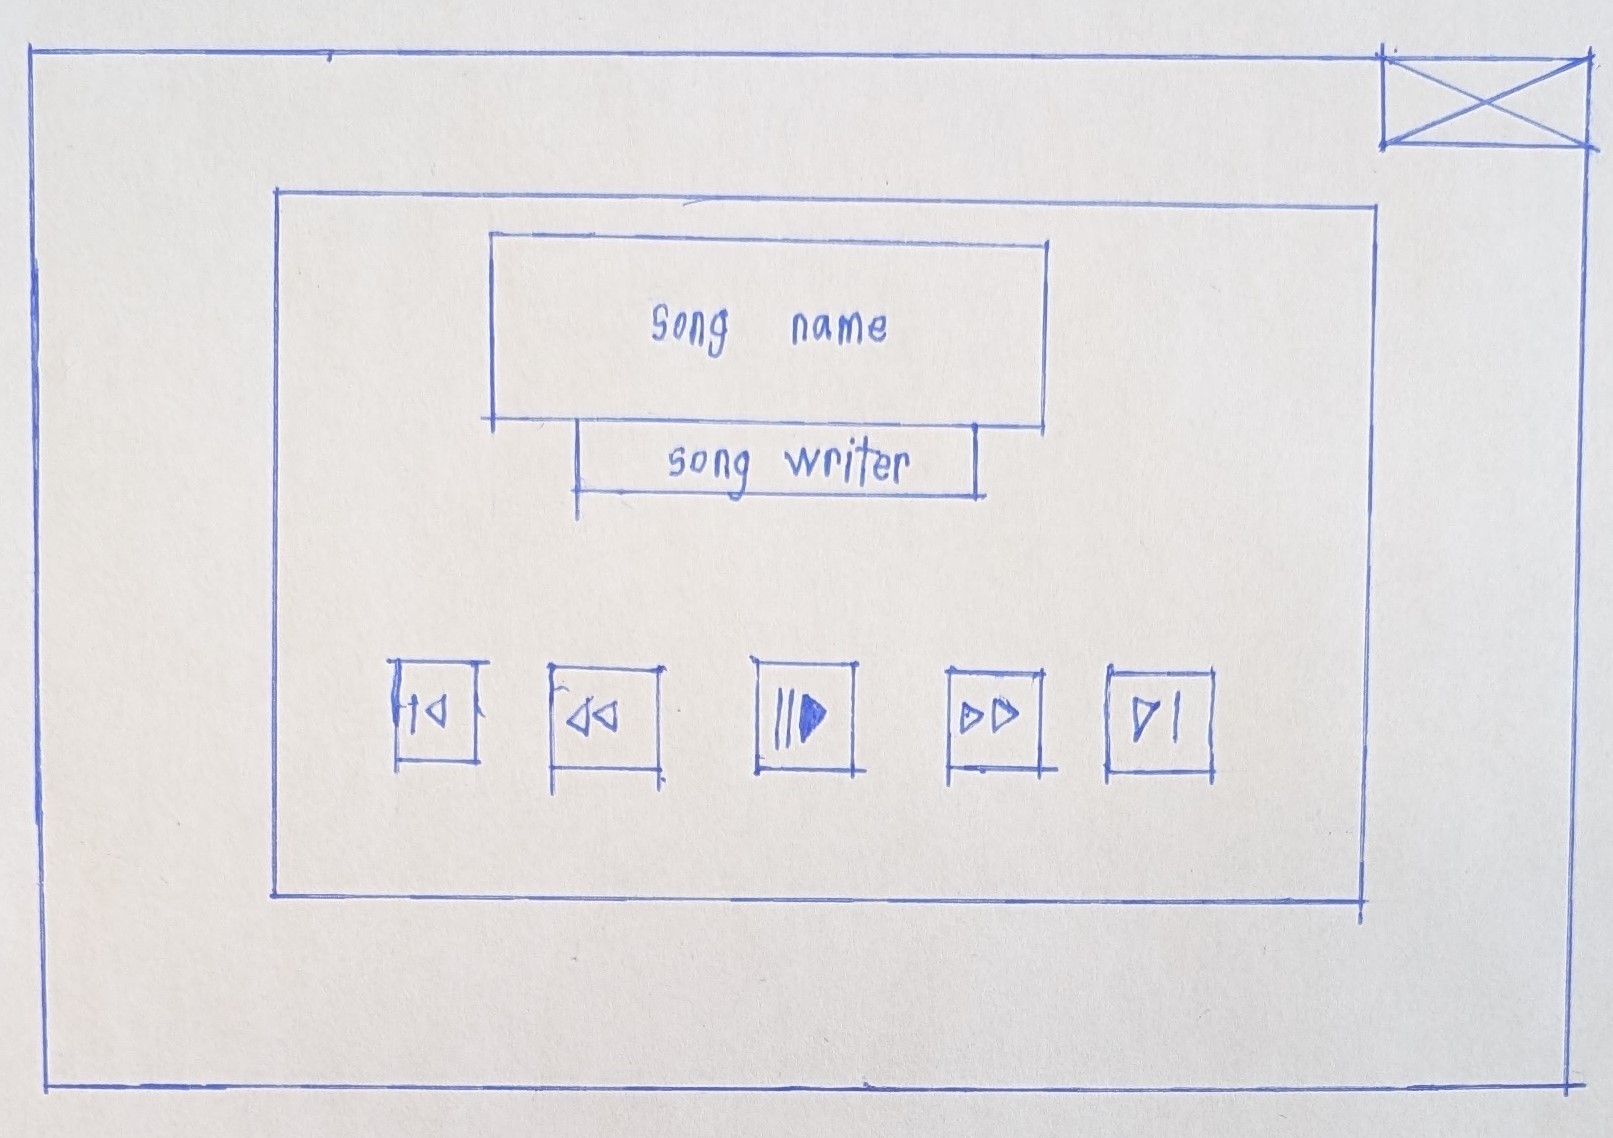 song name
song writer